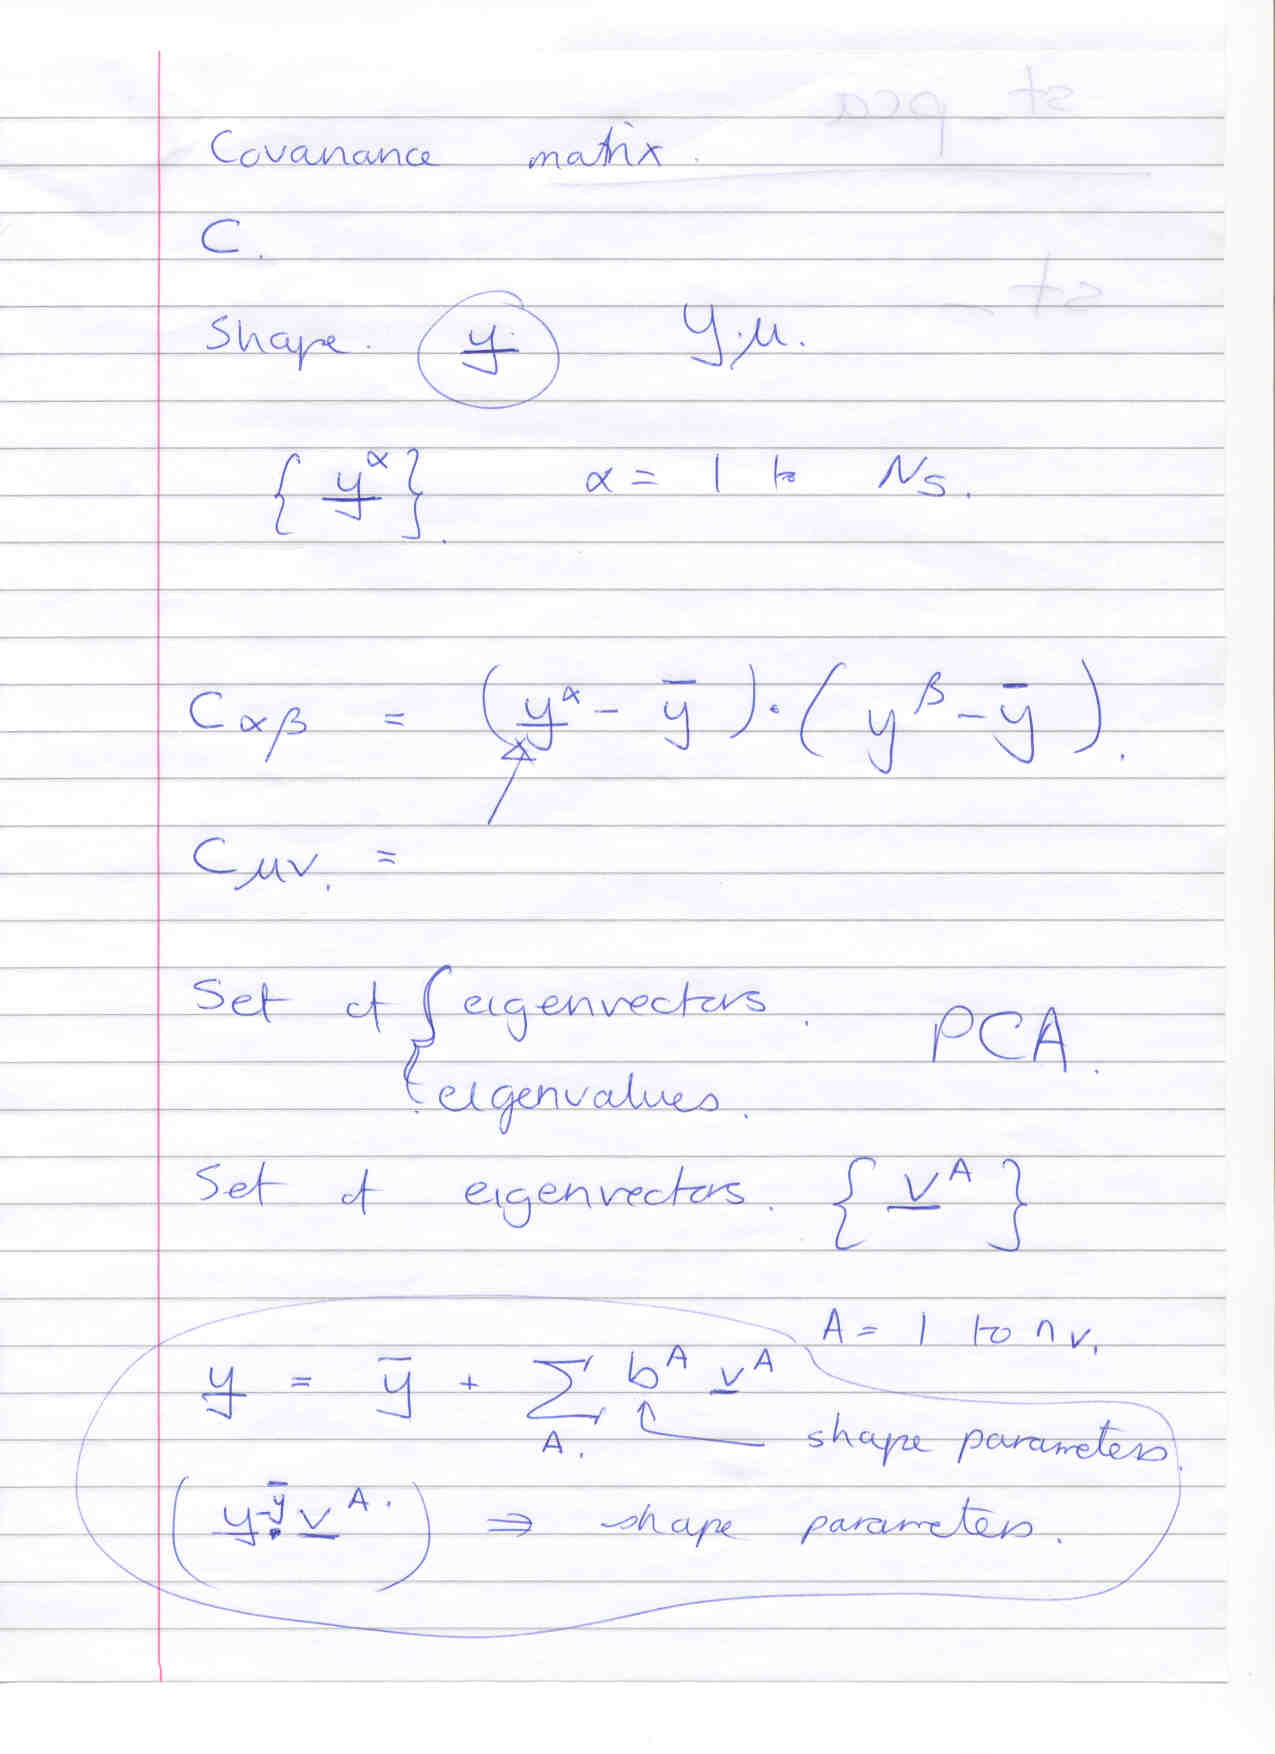 Covariance matrix.
C.
Shape. y yμ.
{ y^α }. α = 1 to N_S.
C_αβ = (y^α - ȳ) · (y^β - ȳ).
C_μν. =
Set of { eigenvectors. PCA.
eigenvalues.
Set of eigenvectors. { v^A }
A = 1 to n_v.
y = ȳ + Σ_A. b^A v^A
shape parameters.
(y - ȳ · v^A.) ⇒ shape parameters.